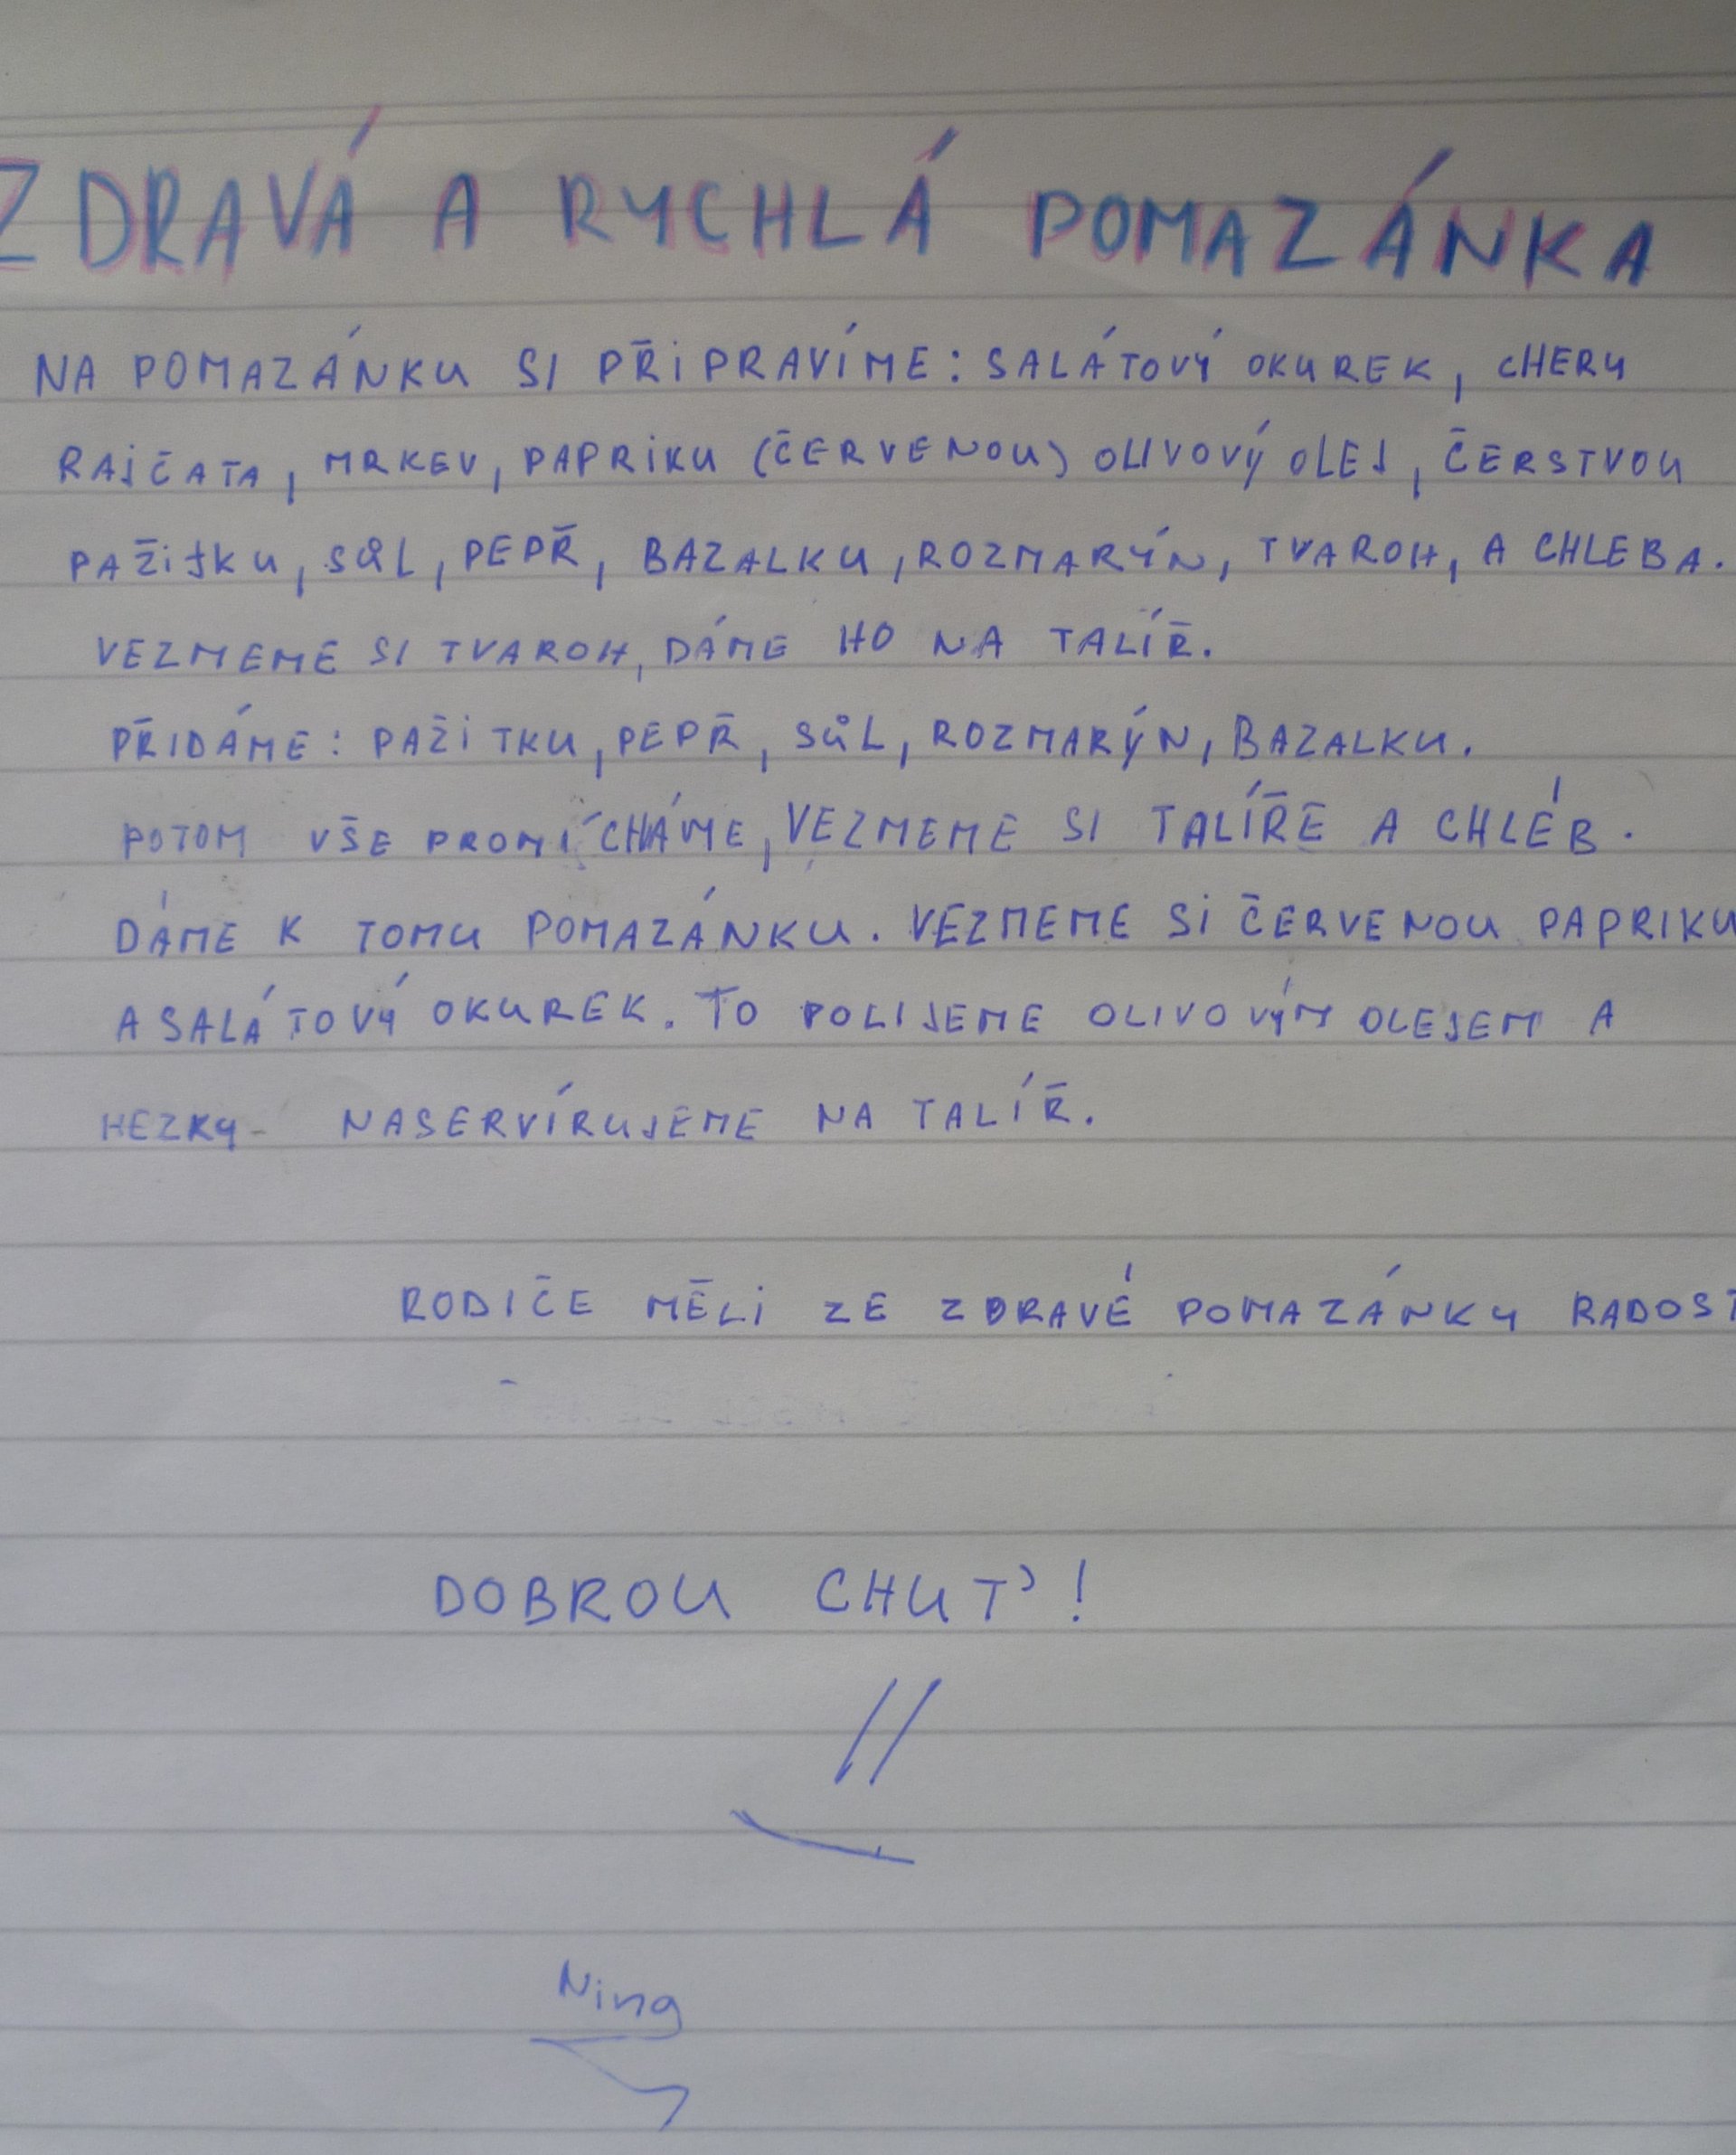 ZDRAVÁ A RYCHLÁ POMAZÁNKA
NA POMAZÁNKU SI PŘIPRAVÍME: SALÁTOVÝ OKUREK, CHERY
RAJČATA, MRKEV, PAPRIKU (ČERVENOU) OLIVOVÝ OLEJ, ČERSTVOU
PAŽITKU, SŮL, PEPŘ, BAZALKU, ROZMARÝN, TVAROH, A CHLEBA.
VEZMEME SI TVAROH, DÁME HO NA TALÍŘ.
PŘIDÁME: PAŽITKU, PEPŘ, SŮL, ROZMARÝN, BAZALKU.
POTOM VŠE PROMÍCHÁME, VEZMEME SI TALÍŘE A CHLÉB.
DÁME K TOMU POMAZÁNKU. VEZMEME SI ČERVENOU PAPRIKU
A SALÁTOVÝ OKUREK. TO POLIJEME OLIVOVÝM OLEJEM A
HEZKY NASERVÍRUJEME NA TALÍŘ.
RODIČE MĚLI ZE ZDRAVÉ POMAZÁNKY RADOST
DOBROU CHUŤ!